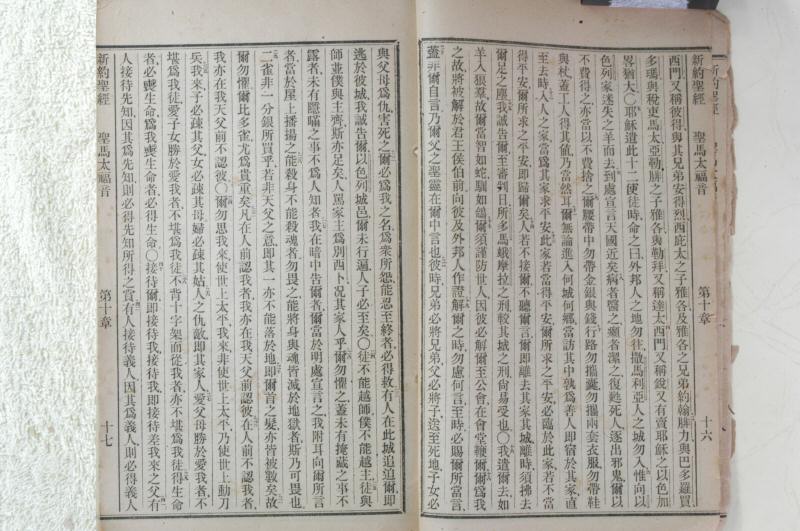 新約聖經 聖馬太福音 第十章 十六
西門又稱彼得與其兄弟安得烈西庇太之子雅各及雅各之兄弟約翰腓力與巴多羅買
多瑪與稅吏馬太亞勒腓之子雅各與勒拜又稱達太西門又稱銳又有賣耶穌之以色加
畧猶大〇耶穌遣此十二使徒時命之曰外邦人之地勿往撒馬利亞人之城勿入惟向以
色列家迷失之羊而去到處宣言天國近矣病者醫之癩者潔之復甦死人逐出邪鬼爾以
不費得之亦當以不費捨之爾腰帶中勿帶金銀與錢行路勿攜囊勿攜兩套衣服勿帶鞋
與杖蓋工人得其值乃當然耳爾無論進入何城何鄉當訪其中孰為善人即宿於其家直
至去時入人之家當為其家求平安此家若當得平安爾所求之平安必臨於此家若不當
得平安爾所求之平安即歸爾矣人若不接爾不聽爾言爾即離去其家其城離時須拂去
爾足之塵我誠告爾至審判日所多馬蛾摩拉之刑較其城之刑尚易受也〇我遣爾去如
羊入狼羣故爾當智如蛇馴如鴿爾須謹防世人因彼必解爾至公會在會堂鞭爾爾為我
之故將被解於君王侯伯前向彼及外邦人作證解爾之時勿慮何言至時必賜爾所當言
蓋非爾自言乃爾父之聖靈在爾中言也彼時兄弟必將兄弟父必將子送至死地子女必
與父母為仇害死之爾必為我之名為眾所怨能忍至終者必得救有人在此城追迫爾即
逃於彼城我誠告爾以色列城邑爾未行遍人子必至矣〇徒不能越師僕不能越主徒與
師並僕與主齊斯亦足矣人罵家主為別西卜况其家人乎爾勿懼之蓋未有掩藏之事不
露者未有隱瞞之事不為人知者我在暗中告爾者爾當於明處宣言之我附耳向爾所言
者當於屋上播揚之能殺身不能殺魂者勿畏之能將身與魂皆滅於地獄者斯乃可畏也
二雀非一分銀所買乎若非天父之意即其一亦不能落於地即爾首之髮亦皆被數矣故
爾勿懼爾比多雀尤為貴重矣凡在人前認我者我亦在我天父前認彼在人前不認我者
我亦在我天父前不認彼〇爾勿思我來使世上太平我來非使世上太平乃使世上動刀
兵我來子必疎其父女必疎其母婦必疎其姑人之仇敵即其家人愛父母勝於愛我者不
堪為我徒愛子女勝於愛我者不堪為我徒不背十字架而從我者亦不堪為我徒得生命
者必喪生命為我喪生命者必得生命〇接待爾即接待我接待我即接待差我來之父有
人接待先知因其為先知則必得先知所得之賞有人接待義人因其為義人則必得義人
新約聖經 聖馬太福音 第十章 十七